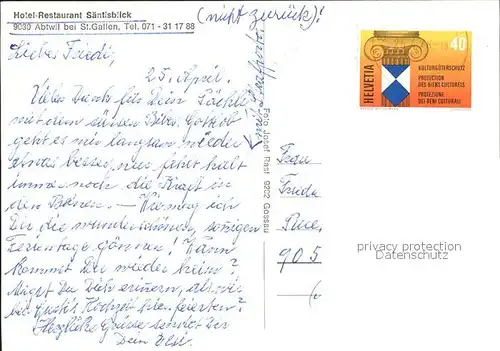 Hotel-Restaurant Säntisblick
9030 Abtwil bei St.Gallen, Tel. 071 - 31 17 88
(nicht zurück)!
Liebe Friedi,
25. April.
Vielen Dank für Dein Päckli
mit dem süssen Biber. Gottlob
geht es mir langsam wieder
etwas besser, nur fehlt halt
immer noch die Kraft in
den Beinen. — Wie mag ich
Dir die wunderschönen, sonnigen
Ferientage gönnen! Wann
kommst Du wieder heim?
Magst Du Dich erinnern, als wir
bei Hochzeit hier feierten?
Herzliche Grüsse sendet Dir
Dein
Foto Josef Rast 9202 Gossau
HELVETIA
40
KULTURGÜTERSCHUTZ
PROTECTION
DES BIENS CULTURELS
PROTEZIONE
DEI BENI CULTURALI
Frau
905
privacy protection
Datenschutz